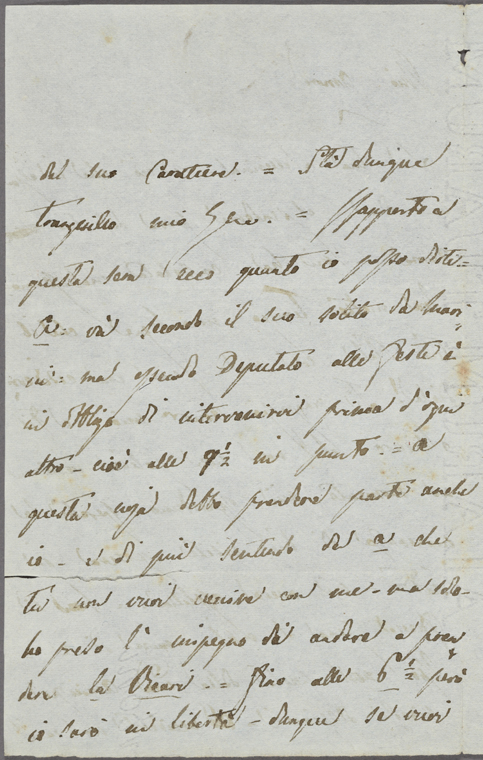 del suo Carattere. = Stà dunque
tranquillo mio Gecc. = Rapporto a
questa sera ecco quanto io posso dirti =
A. và secondo il suo solito da Mari
ni = ma essendo Deputato alle feste è
in obbligo di intervenirvi prima d'ogni
altro - cioè alle 9 1/2 in punto. = a
questa noja debbo prendere parte anche
io - e di più sentendo da a che
tu non vuoi venire con me - ma solo -
ho preso l'impegno di andare a pren
dere la Vicari = fino alle 6 1/2 però
io sarò in libertà - dunque se vuoi